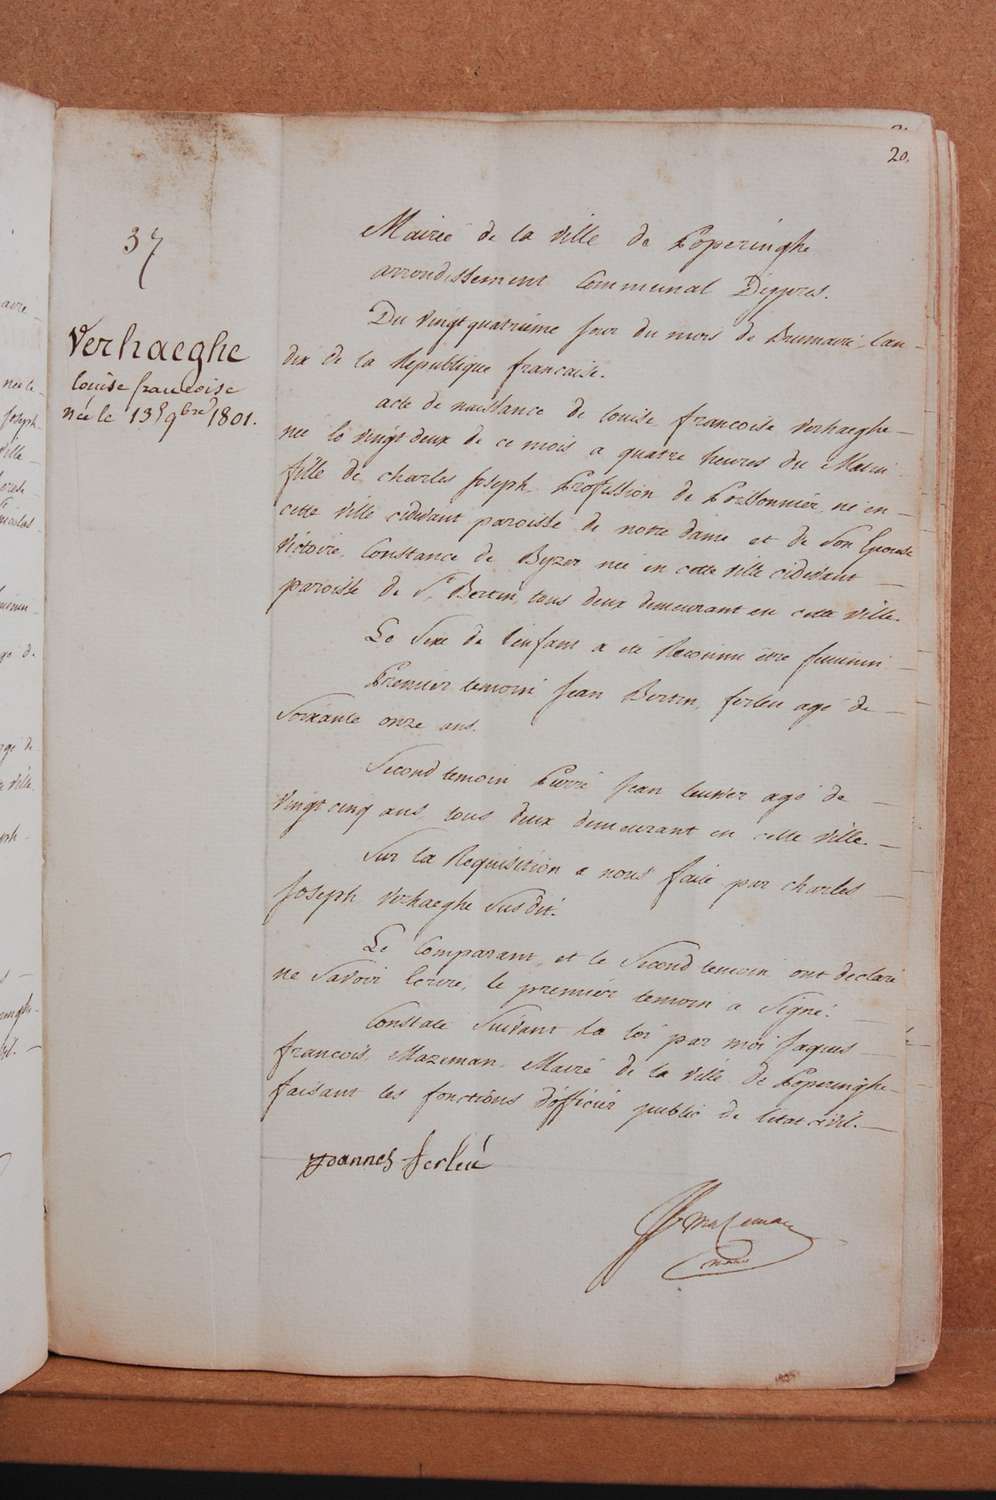 20.
37
Verhaeghe
louise francoise
née le 13 9bre 1801.
Mairié de la ville de Poperinghe
arrondissement Communal Dippres.
Du vingt quatrième jour du mois de Brumaire, lan
dix de la République francaise.
acte de naissance de louise francoise Verhaeghe
née le vingt deux de ce mois a quatre heures du Matin
fille de charles Joseph Profession de Poissonnier, né en
cette ville cidivant paroisse de notre dame et de Son Epouse
Victoire, Constance de Byzer née en cette ville cidevant
paroisse de St Bertin, tous deux demeurant en cette ville.
Le Sexe de lenfant a été Reconnu être feminin
Premier temoin Jean Bertin, ferleu agé de
Soixante onze ans.
Second temoin Pierre Jean agé de
vingt cinq ans, tous deux demeurant en cette ville.
Sur la Requisition a nous faite par charles
Joseph Verhaeghe Susdit.
Le Comparant, et le Second temoin ont declaré
ne Savoir Ecrire, le premier temoin a Signé.
Constaté Suivant la loi par moi Jaques
francois, Mazeman, Mairé de la ville de Poperinghe
faisant les fonctions d'officier public de letat civil.
Joannes ferleu
Mazeman
maire